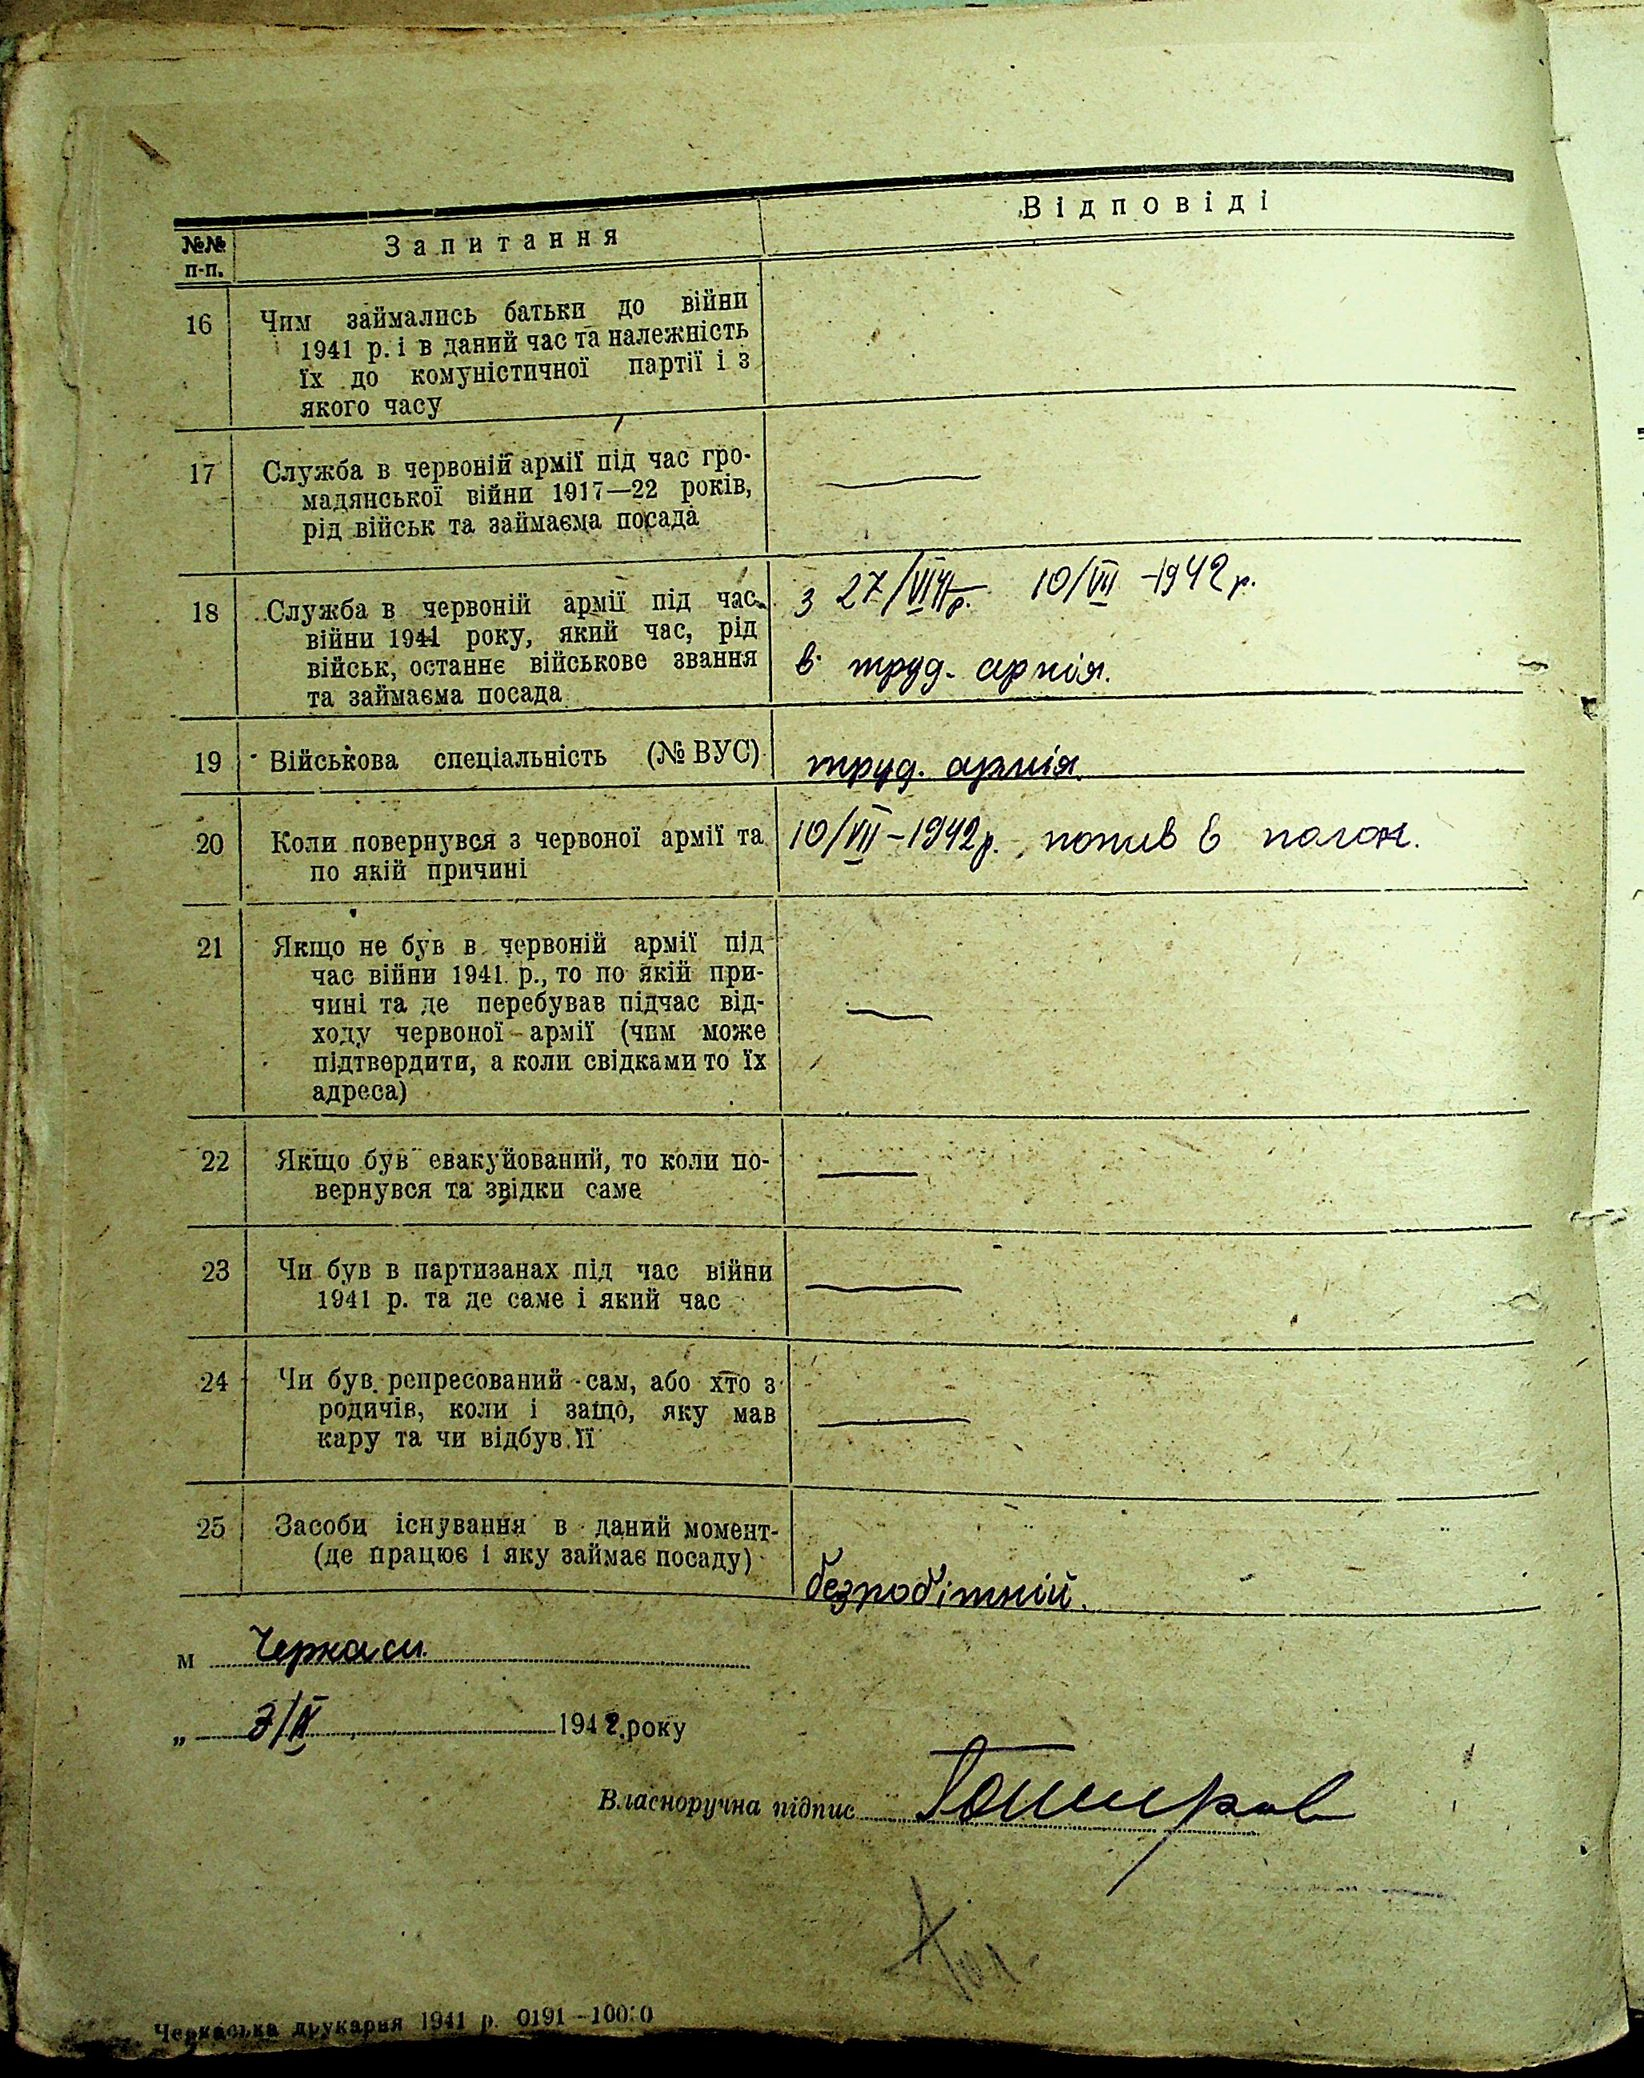 №№ п-п.
Запитання
Відповіді
16
Чим займались батьки до війни
1941 р. і в даний час та належність
їх до комуністичної партії і з
якого часу
17
Служба в червоній армії під час гро-
мадянської війни 1917—22 років,
рід військ та займаєма посада
18
Служба в червоній армії під час
війни 1941 року, який час, рід
військ, останнє військове звання
та займаєма посада
з 27/VI 41 р. 10/VII -1942 р.
в труд. армія.
19
Військова спеціальність (№ ВУС)
труд. армія
20
Коли повернувся з червоної армії та
по якій причині
10/VII-1942р. попив в полон.
21
Якщо не був в червоній армії під
час війни 1941 р., то по якій при-
чині та де перебував підчас від-
ходу червоної армії (чим може
підтвердити, а коли свідками то їх
адреса)
22
Якщо був евакуйований, то коли по-
вернувся та звідки саме
23
Чи був в партизанах під час війни
1941 р. та де саме і який час
24
Чи був репресований сам, або хто з
родичів, коли і защо, яку мав
кару та чи відбув її
25
Засоби існування в даний момент-
(де працює і яку займає посаду)
безробітній.
м Черкаси
„ 3/X 1942 року
Власноручна підпис
Черкаська друкарня 1941 р. 0191-10000